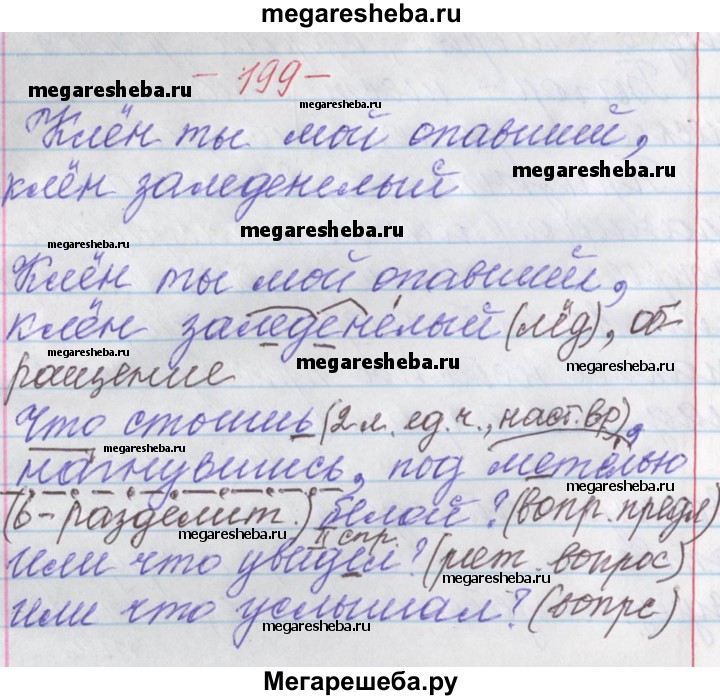 megaresheba.ru
- 199 -
megaresheba.ru
megaresheba.ru
Клён ты мой опавший,
megaresheba.ru
клён заледенелый
megaresheba.ru
megaresheba.ru
Клён ты мой опавший,
клён заледенелый (лёд), об
megaresheba.ru
ращение
Что стоишь (2 л. ед. ч., наст. вр),
megaresheba.ru
нагнувшись, под метелью
(ь - разделит.) белой? (вопр. предл)
II спр.
megaresheba.ru
Или что увидел? (рит. вопрос)
megaresheba.ru
Или что услышал? (вопрс)
megaresheba.ru
Мегарешеба.ру